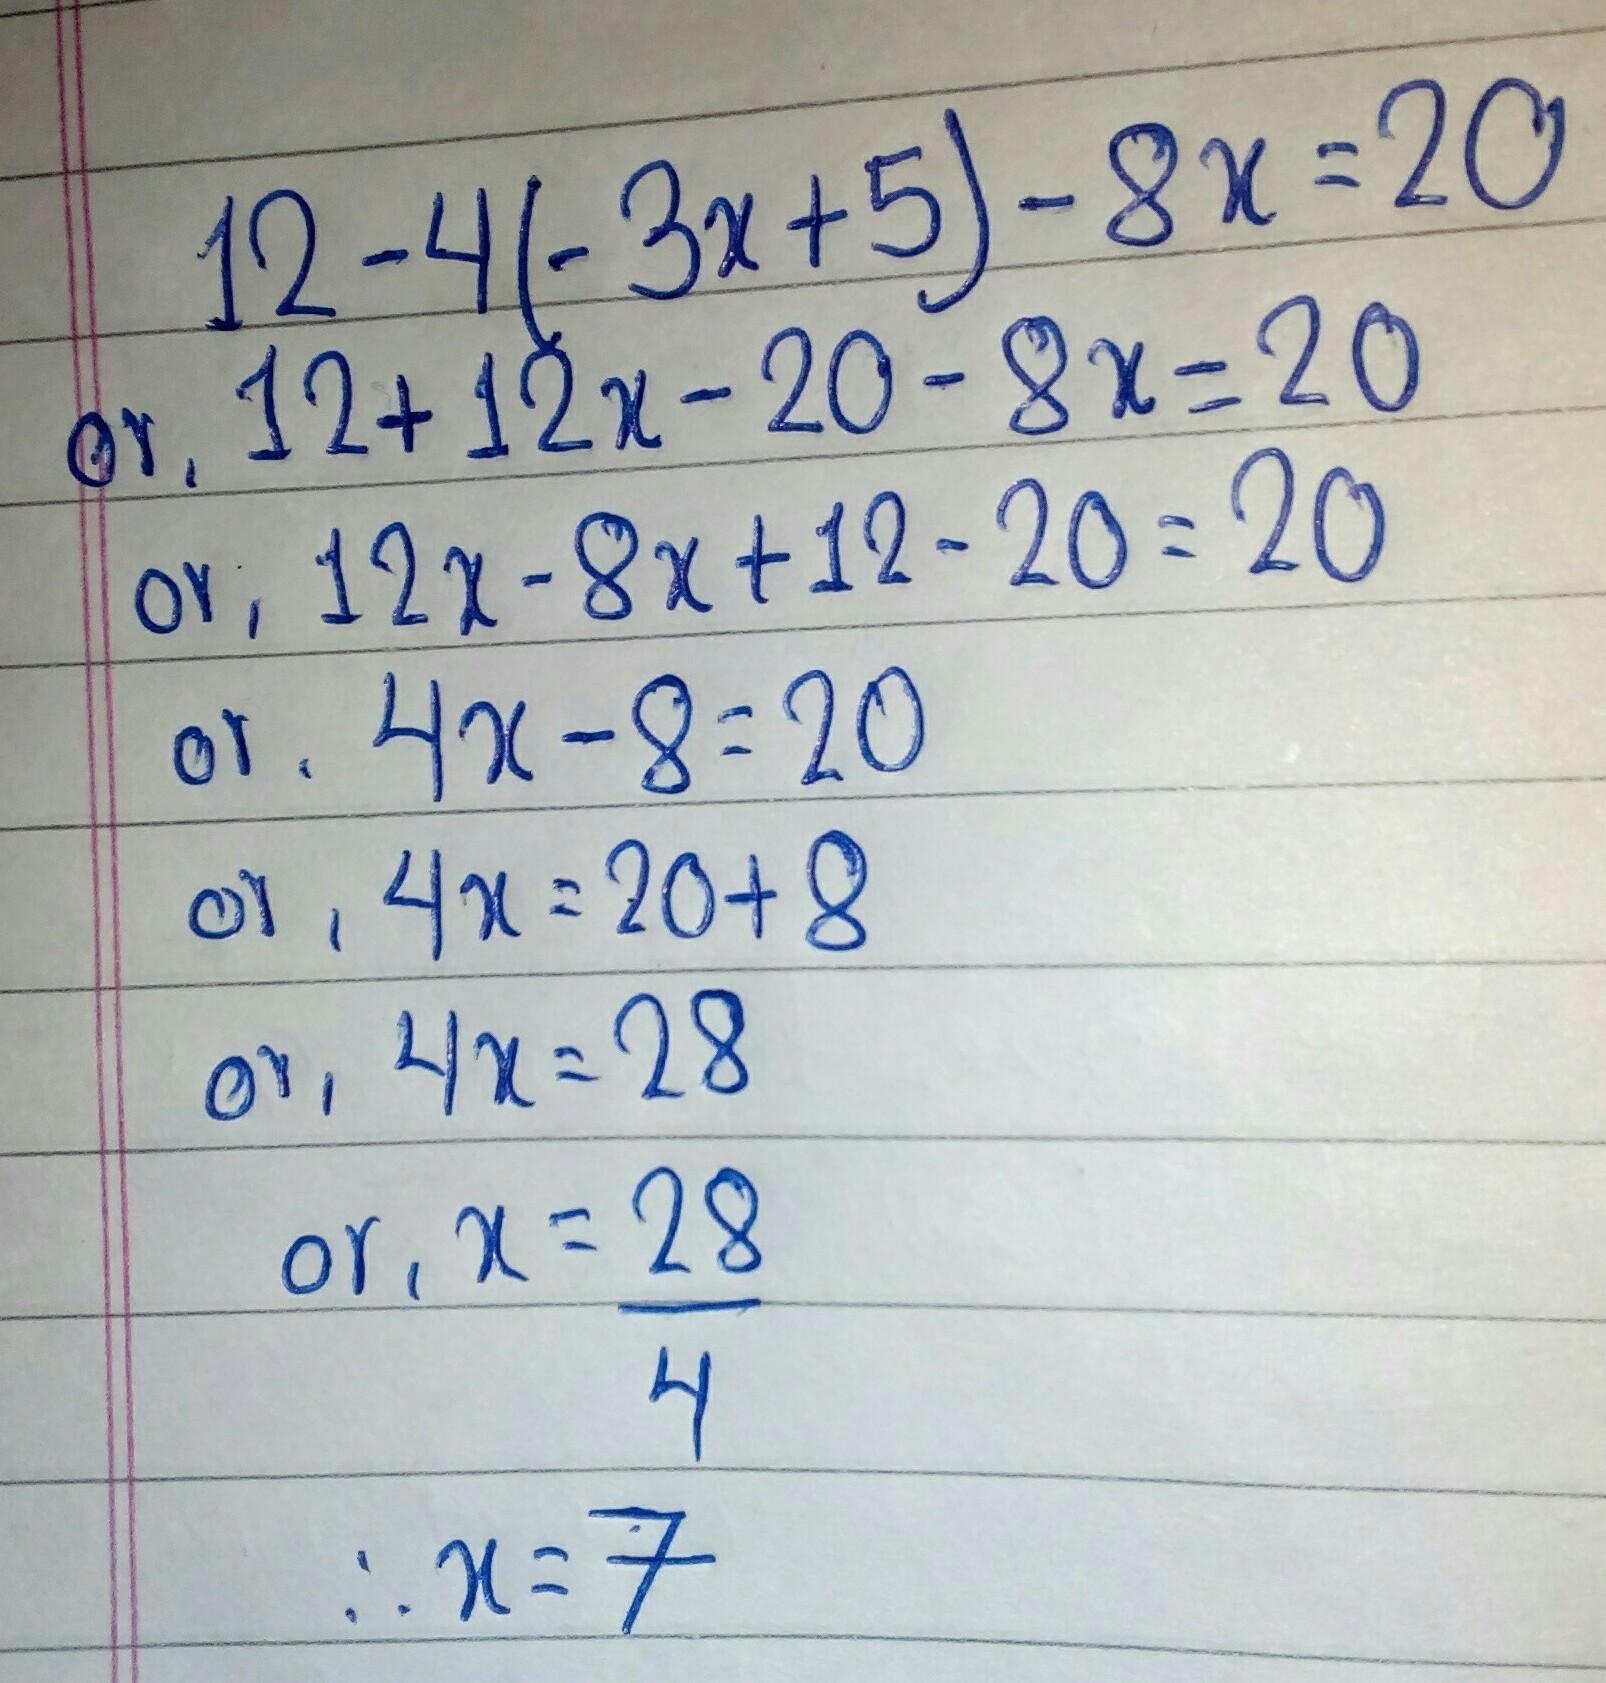 12-4(-3x+5)-8x=20
or, 12+12x-20-8x=20
or, 12x-8x+12-20=20
or. 4x-8=20
or, 4x=20+8
or, 4x=28
or, x=28
4
∴x=7